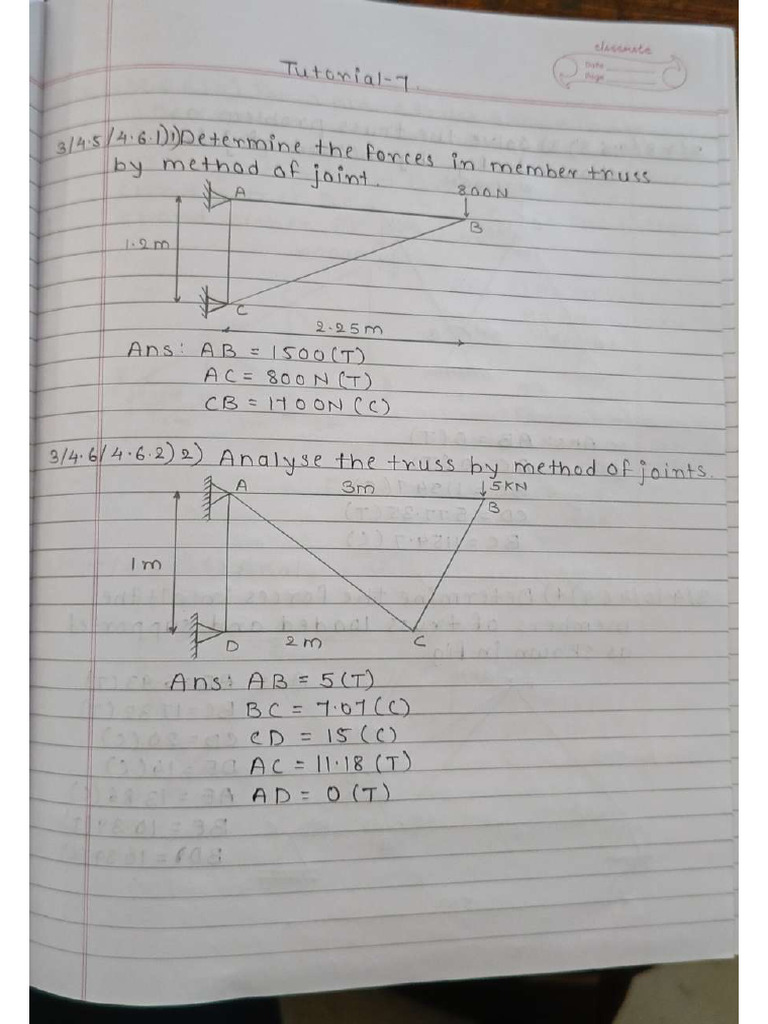 classmate
Date
Page
Tutorial-7.
3/4.5/4.6.1)1)Determine the forces in member truss
by method of joint.
A
800N
B
1.2m
C
2.25m
Ans: AB = 1500(T)
AC = 800N(T)
CB = 1700N(C)
3/4.6/4.6.2)2) Analyse the truss by method of joints.
A
3m
5KN
B
1m
D
2m
C
Ans: AB = 5(T)
BC = 7.07(C)
CD = 15(C)
AC = 11.18(T)
AD = 0(T)